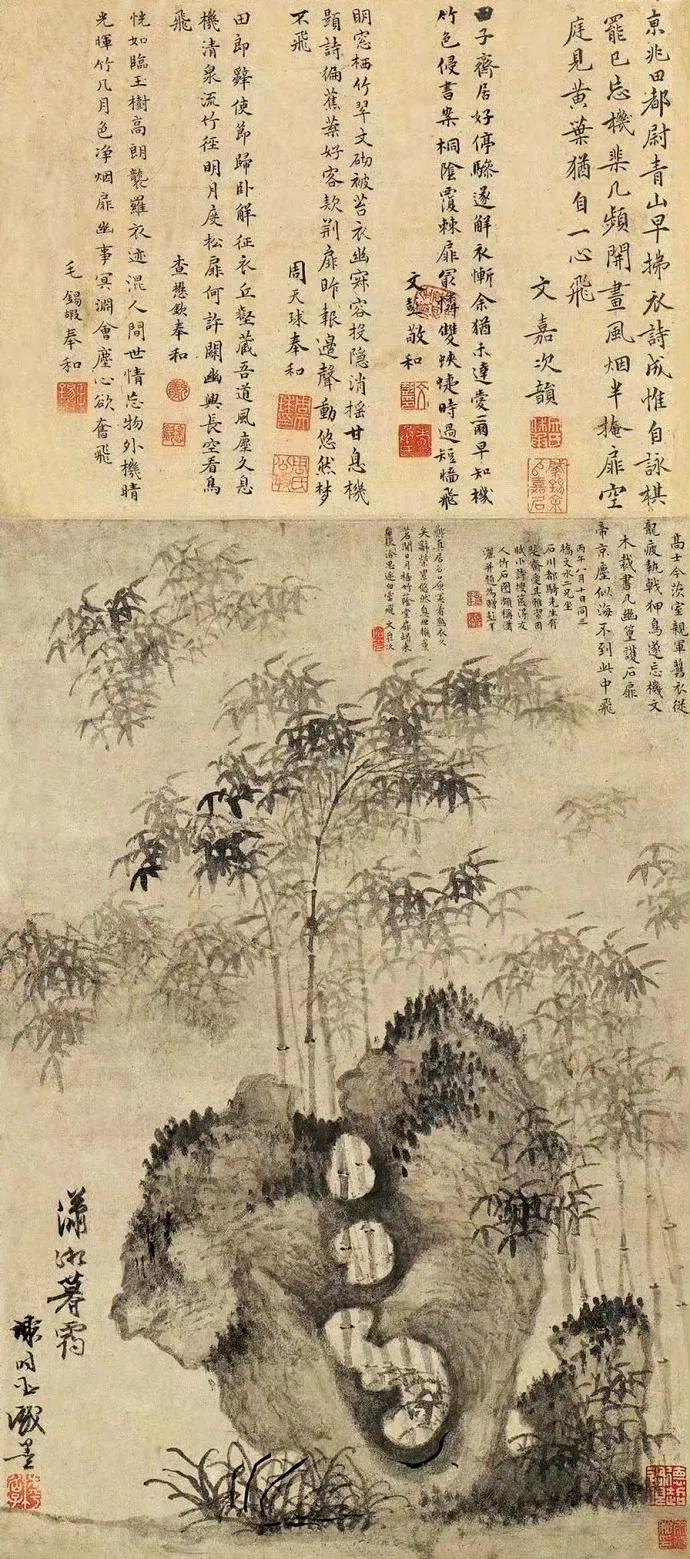 京兆田都尉青山早拂衣詩成惟自詠棋
罷已忘機棐几頻開畫風烟半掩扉空
庭見黃葉猶自一心飛
文嘉次韻
田子齋居好停驂遂解衣慚余猶未達愛爾早知機
竹色侵書案桐陰覆棘扉最憐雙蛺蝶時過短墻飛
文彭敬和
明窓栖竹翠文砌被苔衣幽寂容投隐消摇甘息機
題詩徧蕉葉好客款荆扉昨報邊聲動悠然梦
不飛
周天球奉和
田郎辭使節歸卧解征衣丘壑蔵吾道風塵久息
機清泉流竹徑明月度松扉何許關幽興長空看鳥
飛
查懋欽奉和
恍如臨玉樹高朗襲羅衣迹混人間世情忘物外機晴
光暉竹几月色净烟扉幽事冥淵會塵心欲奮飛
毛錫嘏奉和
高士今茨室親軍舊衣從
龍疲執戟狎鳥遂忘機文
木裁書几幽篁護石扉
帝京塵似海不到此中飛
丙午八月十日同三
橋文水二兄坐
石川都騎先生有
斐齋愛其雅潔因
賦小詩
人竹石圖
瀟湘暮靄
謝時臣戲墨